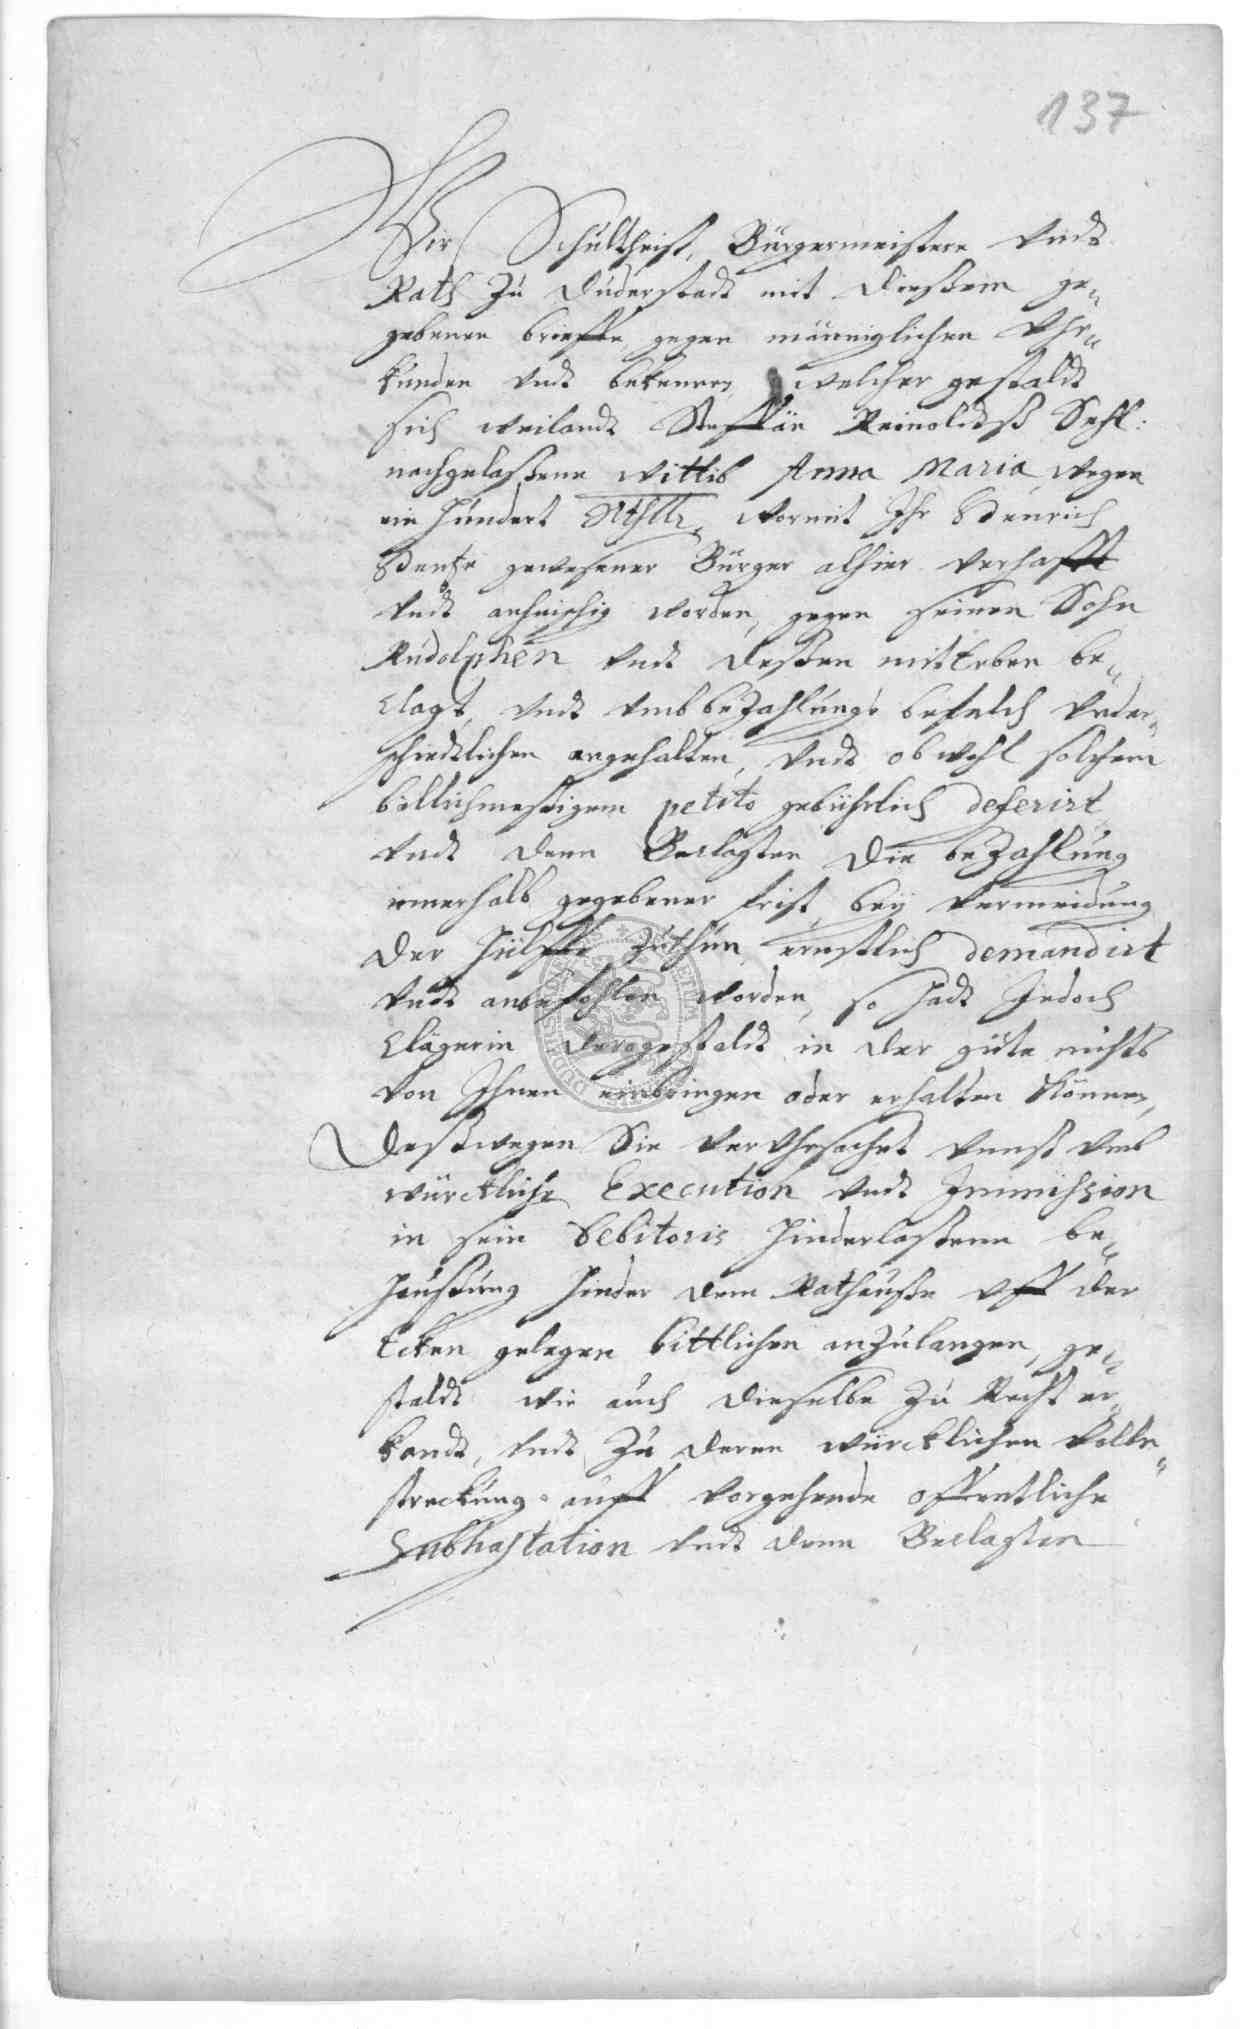 137
Wir Schultheiß, Bürgermeistere vndt
Rath Zu Duderstadt mit dießem ge„
gebenen brieffe, gegen männiglichen Vhr„
kunden vndt bekennen, welcher gestaldt
sich weilandt Steffan Reinoldtß Sehl:
nachgelaßene wittib Anna Maria, wegen
ein Hundert Rthlr, wormit Ihr Henrich
gewesener Bürger alhier verhafft
vndt anheischig worden, gegen seinen Sohn
Rudolphen vndt deßen mitterben be„
clagt, vndt vmb beZahlungs befelch vnder„
schiedtlichen angehalten, vndt obwohl solchem
billichmeßigem petito gebührlich deferirt,
vndt denn Beclagten die beZahlung
innerhalb gegebener frist, bey vermeidung
der Hülffe Zuthun, ernstlich demandirt
vndt anbefohlen worden, so hadt Jedoch
Clägerin dergestaldt in der güte nichts
von Ihnen einbringen oder erhalten Können,
Deßwegen Sie verVhrsachet vnnß vmb
würckliche Execution vndt Immission
in sein Debitoris Hinderlaßene be„
haußung Hinder dem Rathauße vff der
Ecken gelegen bittlichen anZulangen, ge„
staldt wie auch dieselbe Zu Recht er„
kandt, vndt Zu deren würcklichen Volln„
streckung auff vorgehende offentliche
Subhastation vndt denn Beclagten